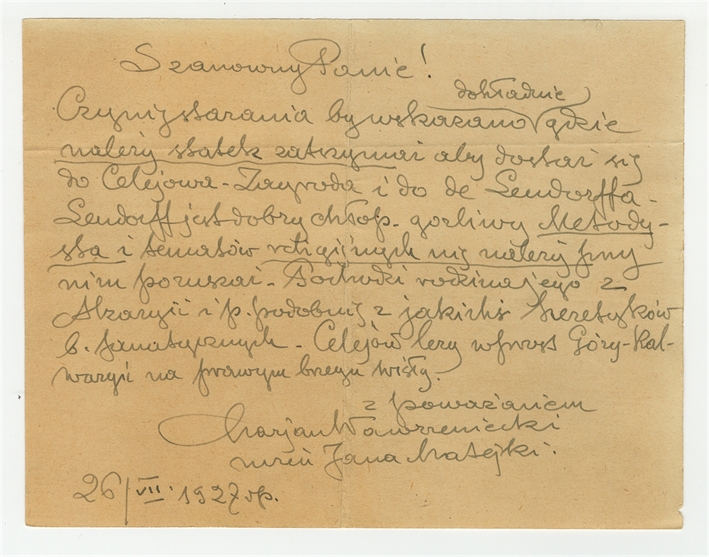 Szanowny Panie!
dokładnie
Czynię starania by wskazano gdzie
należy statek zatrzymać aby dostać się
do Celejowa-Zagroda i do de Lendorffa-
Lendorff jest dobry chłop- gorliwy Metody-
sta i tematów religijnych nie należy przy
nim poruszać- Pochodzi rodzina jego z
Alzacyi i p. podobnie z jakichś heretyków
b. fanatycznych- Celejów leży wprost Góry-Kal-
waryi na prawym brzegu Wisły.
z poważaniem
Marjan Wawrzeniecki
uczeń Jana Matejki.
26/VII. 1927 rp.